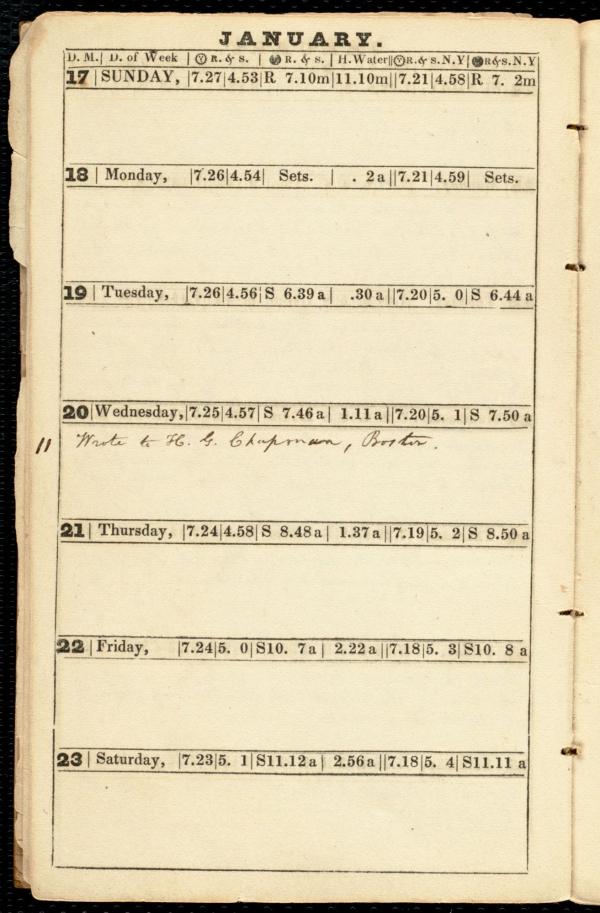 JANUARY.
D. M.| D. of Week |☉ R. & s. | ● R. & s. | H.Water||☉R.& s.N.Y|●R&s.N.Y
17 | SUNDAY, |7.27|4.53|R 7.10m|11.10m||7.21|4.58|R 7. 2m
18 | Monday, |7.26|4.54| Sets. | . 2a||7.21|4.59| Sets.
19 | Tuesday, |7.26|4.56|S 6.39a| .30a||7.20|5. 0|S 6.44a
20|Wednesday,|7.25|4.57|S 7.46a| 1.11a||7.20|5. 1|S 7.50a
11 Wrote to H. G. Chapman, Boston.
21| Thursday, |7.24|4.58|S 8.48a| 1.37a||7.19|5. 2|S 8.50a
22 |Friday, |7.24|5. 0|S10. 7a| 2.22a||7.18|5. 3|S10. 8a
23 | Saturday, |7.23|5. 1|S11.12a| 2.56a||7.18|5. 4|S11.11a